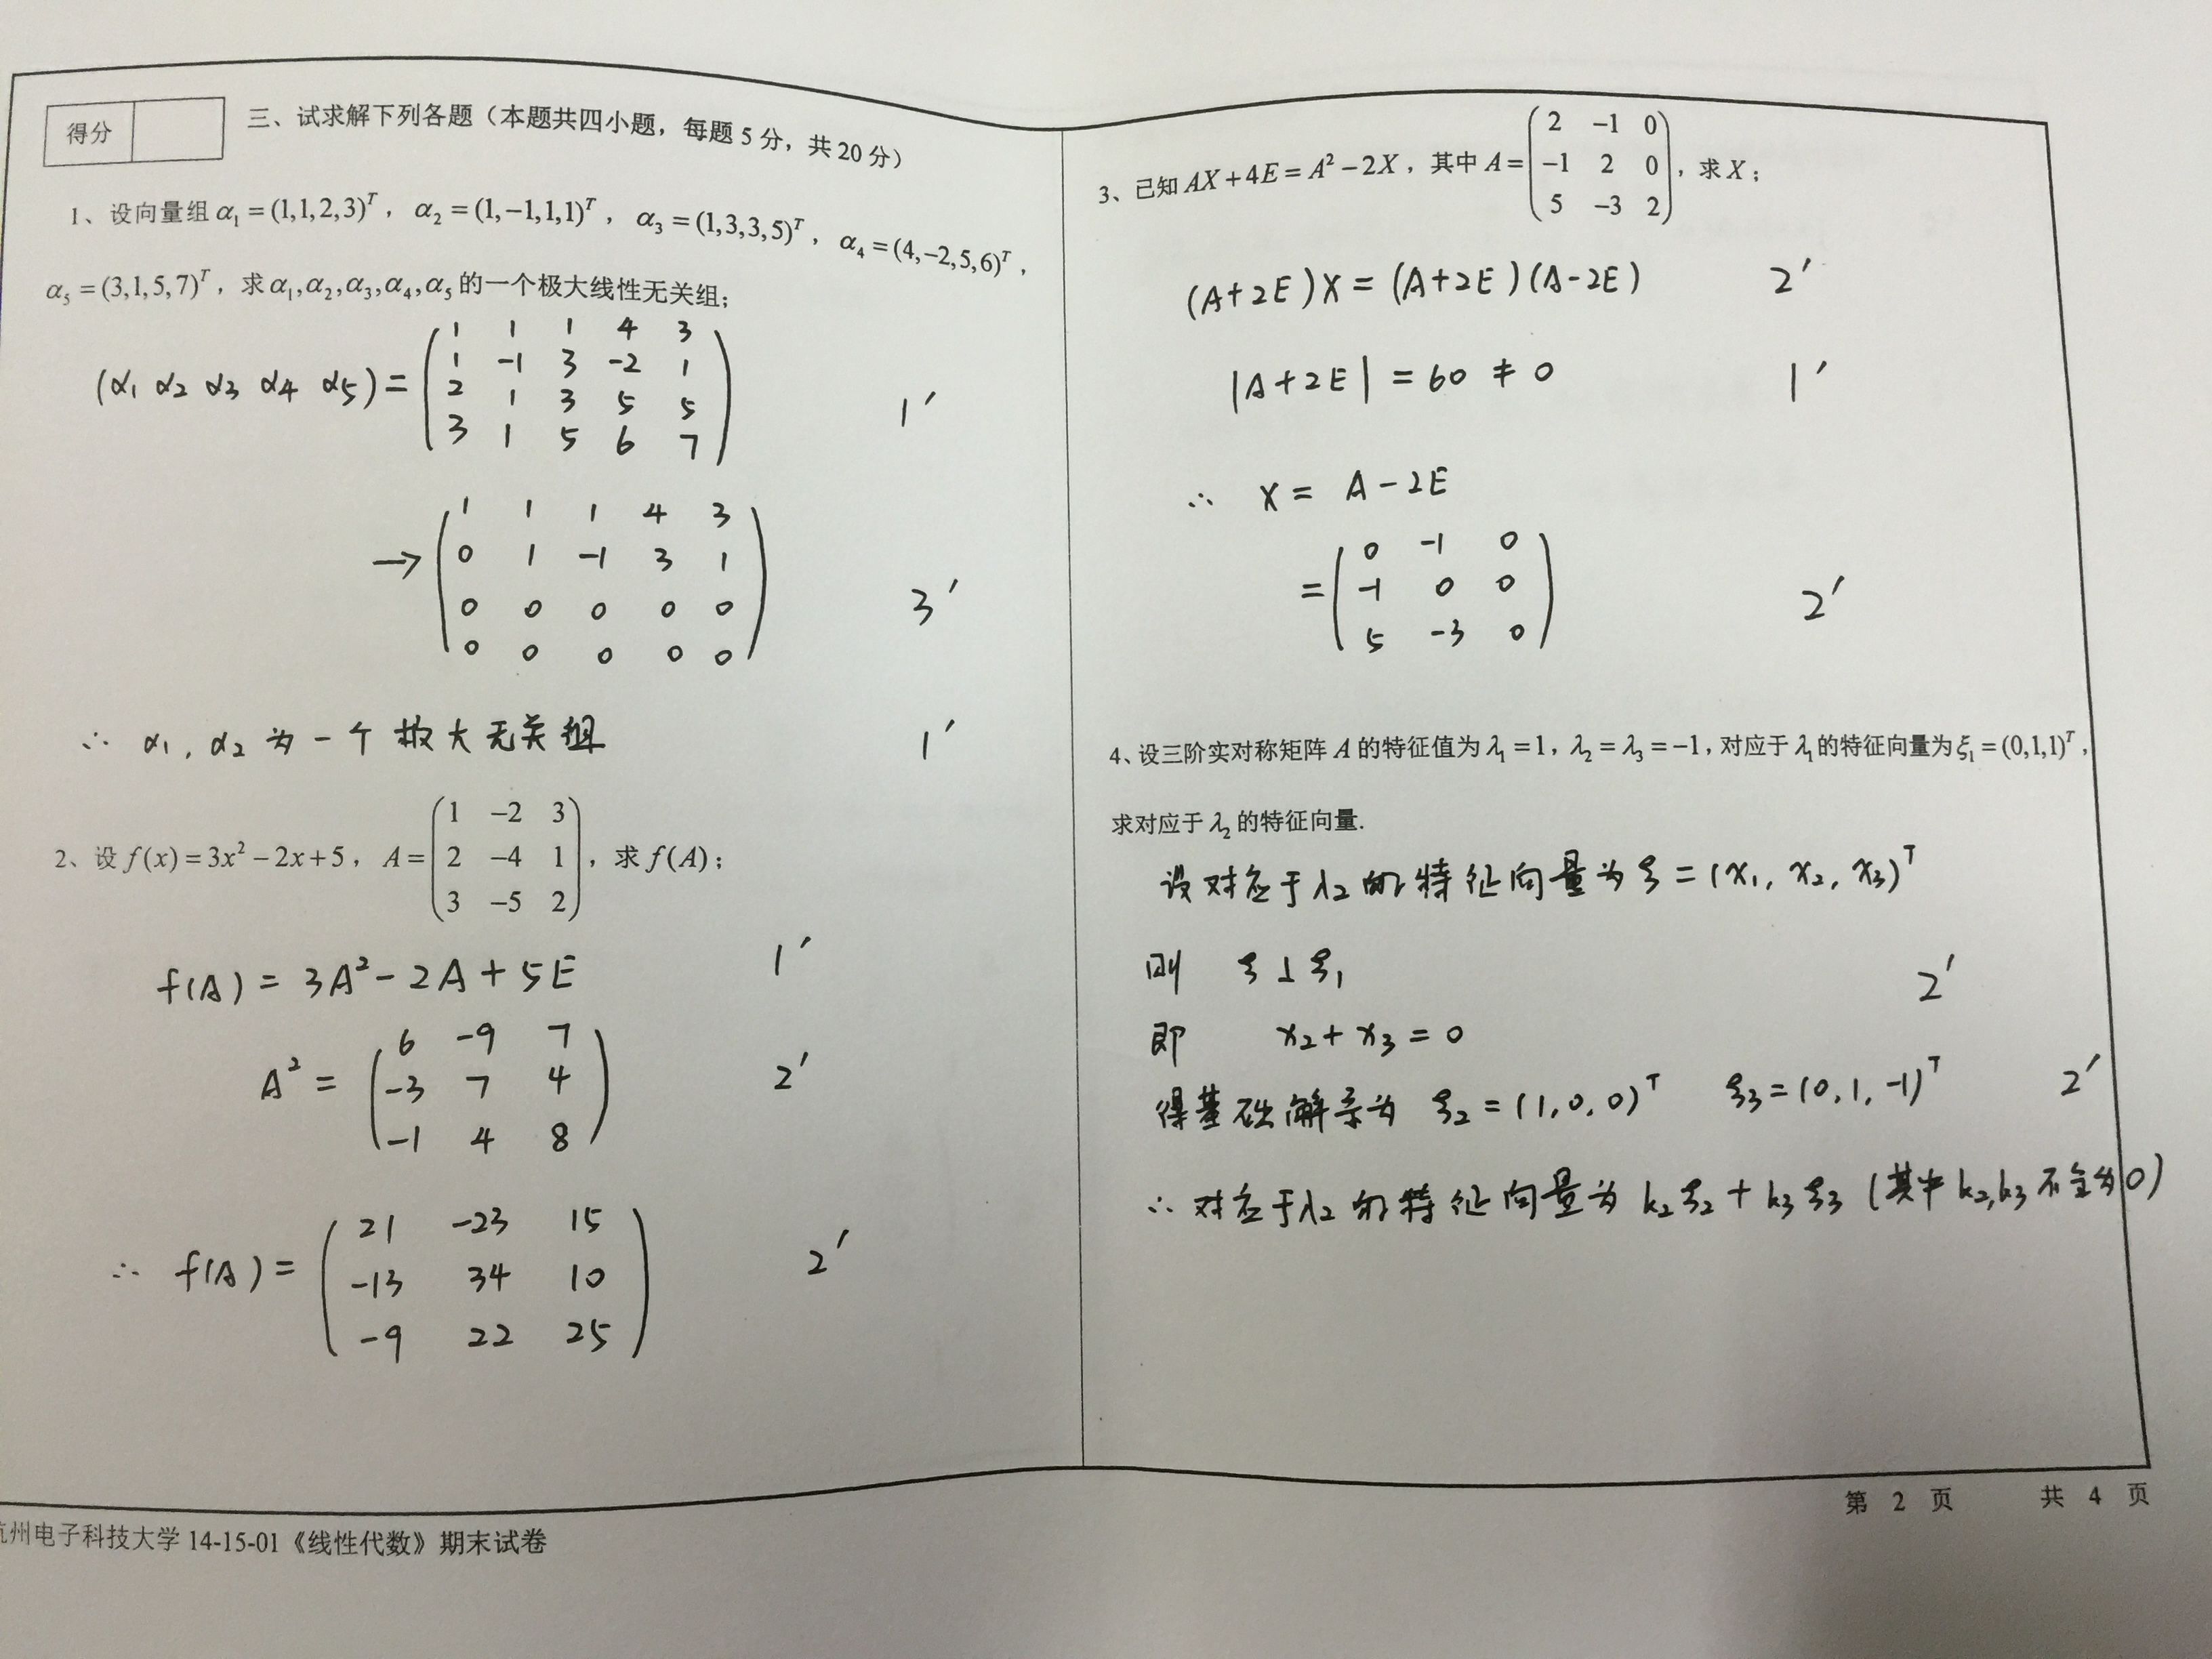 得分
三、试求解下列各题（本题共四小题，每题5分，共20分）
1、设向量组 α₁ = (1,1,2,3)ᵀ， α₂ = (1,−1,1,1)ᵀ， α₃ = (1,3,3,5)ᵀ， α₄ = (4,−2,5,6)ᵀ，
α₅ = (3,1,5,7)ᵀ，求 α₁,α₂,α₃,α₄,α₅ 的一个极大线性无关组；
(α₁ α₂ α₃ α₄ α₅) =
1 1 1 4 3
1 -1 3 -2 1
2 1 3 5 5
3 1 5 6 7
1′
→
1 1 1 4 3
0 1 -1 3 1
0 0 0 0 0
0 0 0 0 0
3′
∴ α₁, α₂ 为一个极大无关组 1′
2、设 f(x) = 3x² − 2x + 5， A =
1 −2 3
2 −4 1
3 −5 2
，求 f(A)；
f(A) = 3A² - 2A + 5E 1′
A² =
6 -9 7
-3 7 4
-1 4 8
2′
∴ f(A) =
21 -23 15
-13 34 10
-9 22 25
2′
3、已知 AX + 4E = A² − 2X，其中 A =
2 −1 0
−1 2 0
5 −3 2
，求 X；
(A+2E)X = (A+2E)(A-2E) 2′
|A+2E| = 60 ≠ 0 1′
∴ X = A - 2E
=
0 -1 0
-1 0 0
5 -3 0
2′
4、设三阶实对称矩阵 A 的特征值为 λ₁ = 1，λ₂ = λ₃ = −1，对应于 λ₁ 的特征向量为 ξ₁ = (0,1,1)ᵀ，
求对应于 λ₂ 的特征向量.
设对应于λ₂的特征向量为 ξ = (x₁, x₂, x₃)ᵀ
则 ξ ⊥ ξ₁ 2′
即 x₂ + x₃ = 0
得基础解系为 ξ₂ = (1, 0, 0)ᵀ ξ₃ = (0, 1, -1)ᵀ 2′
∴ 对应于λ₂的特征向量为 k₂ξ₂ + k₃ξ₃ (其中 k₂,k₃ 不全为0)
第 2 页 共 4 页
杭州电子科技大学 14-15-01《线性代数》期末试卷